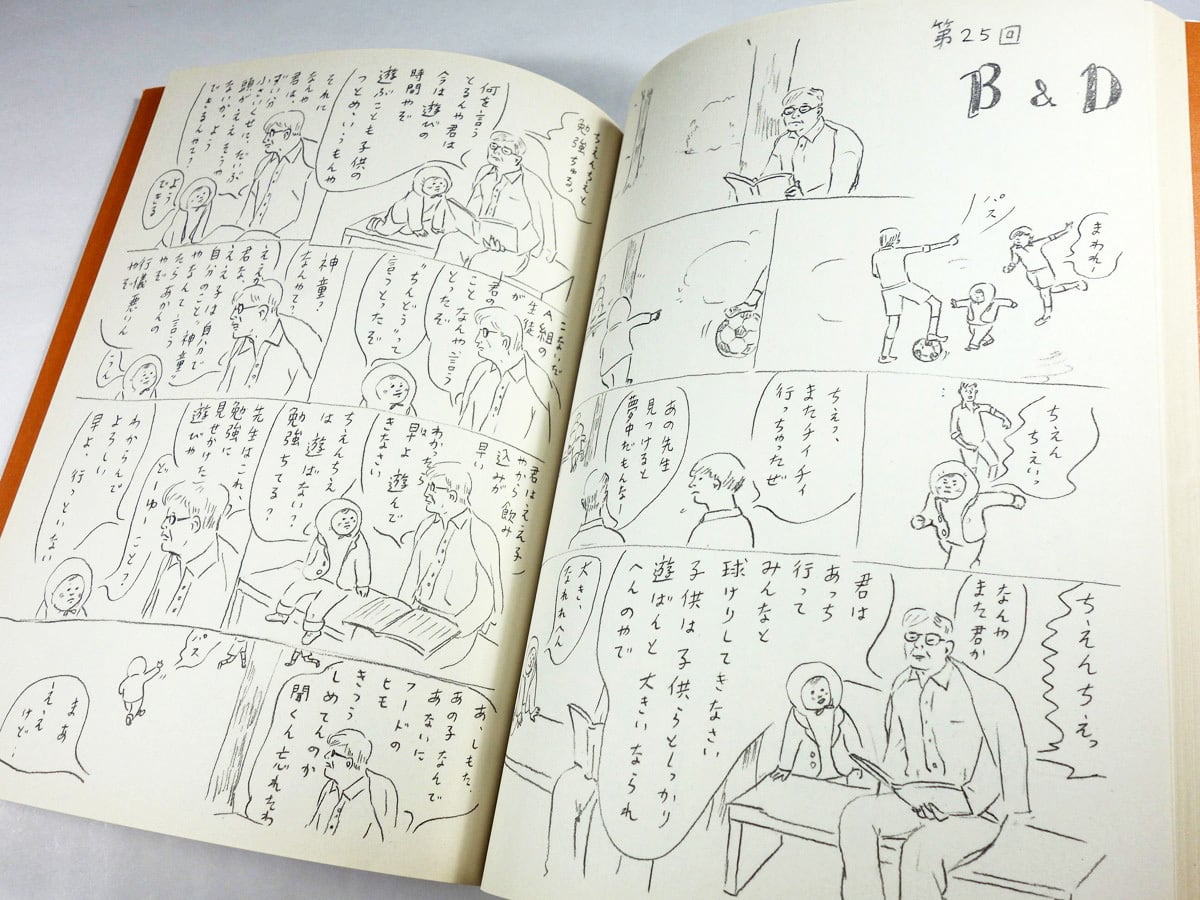 第25回
B & D
パス
まわれー
ちえん
ちえいっ
ちえっ、
またチィチィ
行っちゃったぜ
あの先生
見つけると
夢中だもんなー
ちーえんちえっ
なんや
また君か
君は
あっち
行って
みんなと
球けりしてきなさい
子供は子供らとしっかり
遊ばんと大きいなられ
へんのやで
大き、
なれれへん
ちえんちえと
勉強ちゅるっ
何を言う
とるんや君は
今は遊びの
時間やぞ
遊ぶことも子供の
つとめ、いうもんや
それに
なんや
君は、
ずいぶん
小さいくせに、だいぶ
頭がええそうや
ないか。よう
できるんやて?
よう
できる
こないだ
A組の
生徒
が
君の
ことなんや言う
とったぞ
“ちんどう”って
言っとったぞ
神童?
なんやて?
ええか
君な、
ええ子は自分で
自分のこと、神童
やなんて言う
たらあかんの
やぞ
行儀悪いん
やぞ
うん
君は、ええ子
やから飲み
込みが
早い
わかったら
早よ遊んで
きなさい
ちえんちえ
は遊ばない?
勉強ちてる?
先生はこれ、
勉強に
見せかけた
遊びや
どーゆー
ことっ?
わからんで
よろしい
早よ、行っといない
あ、しもた、
あの子なんで
あないに
フードの
ヒモ
きつう
しめてんのか
聞くん忘れたわ
パス
まあ
ええ
けど…